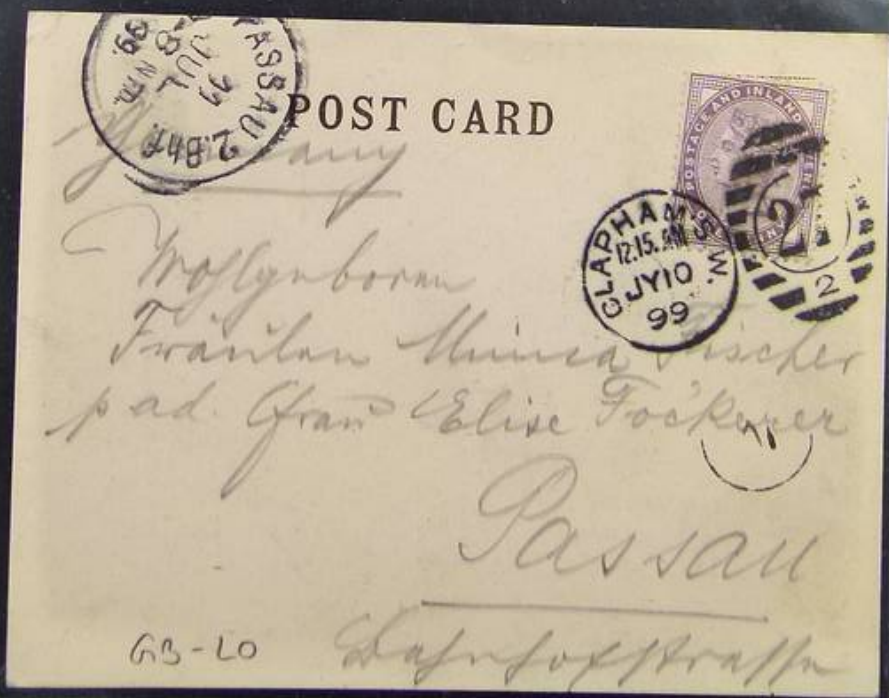 PASSAU 2.Bhf.
11
JUL
8 Nm.
99.
POST CARD
POSTAGE AND INLAND
CLAPHAM.S.W.
12.15.AM
JY10
99
2
Germany
Wohlgeboren
Fräulein Minna Fischer
p ad. Frau Elise Fockerer
Passau
Bahnhofstrasse
GB-LO